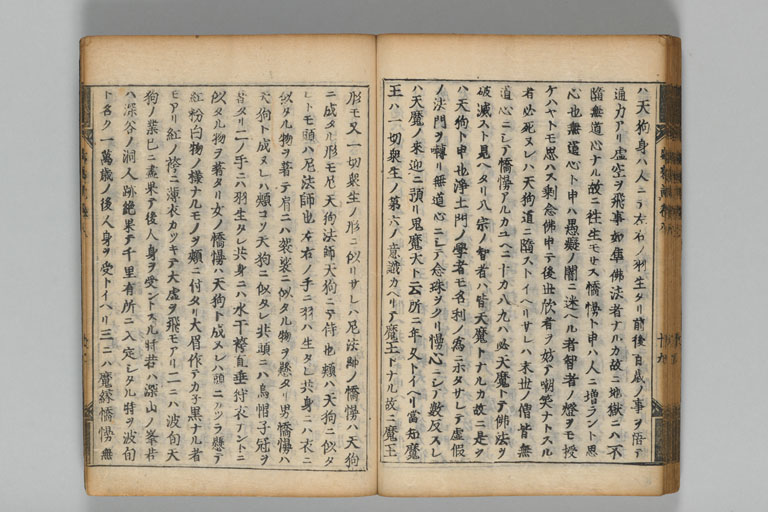 ハ天狗身ハ人ニテ左右ノ羽生タリ前後百歳ノ事ヲ悟テ
通力アリ虚空ヲ飛事如隼佛法者ナルカ故ニ地獄ニハ不
墮無道心ナル故ニ往生モせス憍慢ト申ハ人ニ増ラント思
心也無道心ト申ハ愚癡ノ闇ニ迷ヘル者智者ノ燈ヲモ授
ケハヤトモ思ハス剰念佛申テ後世欣者ヲ妨テ嘲笑ナトスル
者必死ヌレハ天狗道ニ墮ストイヘリサレハ末世ノ僧皆無
道心ニシテ憍慢アルカユヘニ十カ八九ハ必天魔トテ佛法ヲ
破滅スト見ヘタリ八宗ノ智者ハ皆天魔トナルカ故ニ是ヲ
ハ天狗ト申也浄土門ノ學者モ名利ノ爲ニホタサレテ虚假
ノ法門ヲ囀リ無道心ニシテ念珠ヲクリ慢心ニシテ數反スレ
ハ天魔ノ来迎ニ預リ鬼魔天ト云所ニ年久トイヘリ當知魔
王ハ一切衆生ノ第六ノ意識カヘリテ魔王トナル故ニ魔王
形モ又一切衆生ノ形ニ似リサレハ尼法師ノ憍慢ハ天狗
ニ成タル形モ尼天狗法師天狗ニテ侍也頬ハ天狗ニ似タ
レトモ頭ハ尼法師也左右ノ手ニ羽ハ生タレ共身ニハ衣ニ
似タル物ヲ著テ肩ニハ袈裟ニ似タル物ヲ懸タリ男憍慢ハ
天狗ト成ヌレハ頬コソ天狗ニ似タレ共頭ニハ烏帽子冠ヲ
著タリ二ノ手ニハ羽生タレ共身ニハ水干袴直垂狩衣ナントニ
似タル物ヲ著タリ女ノ憍慢ハ天狗ト成ヌレハ頭ニカツラ懸テ
紅粉白物ノ様ナルモノヲ頬ニ付タリ大眉作テカネ黒ナル者
モアリ紅ノ袴ニ薄衣カツキテ大虚ヲ飛モアリ二ニハ波旬天
狗ノ業已ニ盡果テ後人身ヲ受ントスル時若ハ深山ノ峯若
ハ深谷ノ洞人跡絶果テ千里有所ニ入定シタル時ヲ波旬
ト名ク一萬歳ノ後人身ヲ受トイヘリ三ニハ魔縁憍慢無